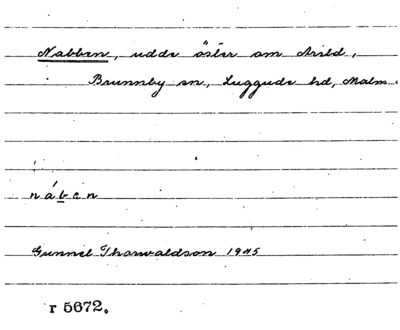 Nabben, udde öster om Arild,
Brunnby sn, Luggude hd, Malm.
nában
Gunnel Thorwaldson 1945
r 5672.